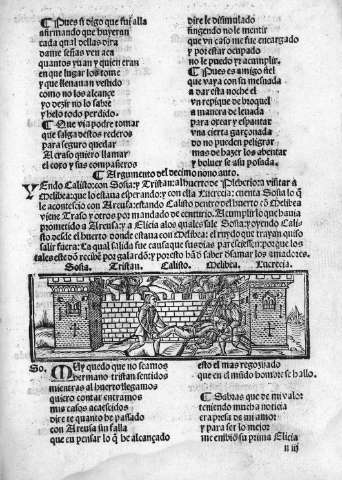 ¶ Pues si digo que fuy alla
afirmando que huyeran
cada qual dellas dira
dame señas ven aca
quantos yuan y quien eran
en que lugar los tome
y que lleuauan vestido
como no los alcançe
yo dezir no lo sabre
y helo todo perdido.
¶ Que via podre tomar
que salga destos rederos
para seguro quedar
Al traso quiero llamar
el coxo y sus compañeros
dire le dissimulado
fingendo no le mentir
que vn caso me fue encargado
y por estar ocupado
no le puedo yr a cumplir.
¶ Pues es amigo fiel
que vaya con su mesnada
a dar esta noche el
vn repique de broquel
a manera de leuada
para oxear y espantar
vna cierta garçonada
do no pueden peligrar
mas de hazer los abentar
y boluer se a su posada.
¶ Argumento del decimo nono auto.
YEndo Calisto: con Sosia: y Tristan: al huerto de Pleberio: a visitar a
Melibea: que lo estaua esperando: y con ella Lucrecia: cuenta Sosia lo q̃
le acontescio con Areusa: estando Calisto dentro del huerto cõ Melibea
viene Traso y otros por mandado de centurio. A cumplir lo que hauia
prometido a Areusa: y a Elicia alos quales sale Sosia: y oyendo Calis-
to desde el huerto donde estaua con Melibea: el ruydo que trayan quiso
salir fuera: La qual salida fue causa que sus dias paresciessen: por que los
tales este dõ recibẽ por galardõ: y por esto hã d' saber d'samar los amadores.
Sosia. Tristan. Calisto. Melibea. Lucrecia.
So. MUy quedo que no seamos
hermano tristan sentidos
mientras al huerto llegamos
quiero contar entramos
mis casos acaescidos
dire te quanto he passado
con Areusa sin falla
que en pensar lo q̃ he alcançado
esto el mas regozijado
que en el mũdo hombre se hallo.
¶ Sabras que de mi valor
teniendo mucha noticia
era presa de mi amor
y para ser lo mejor
me embiõ su prima Elicia
n iij